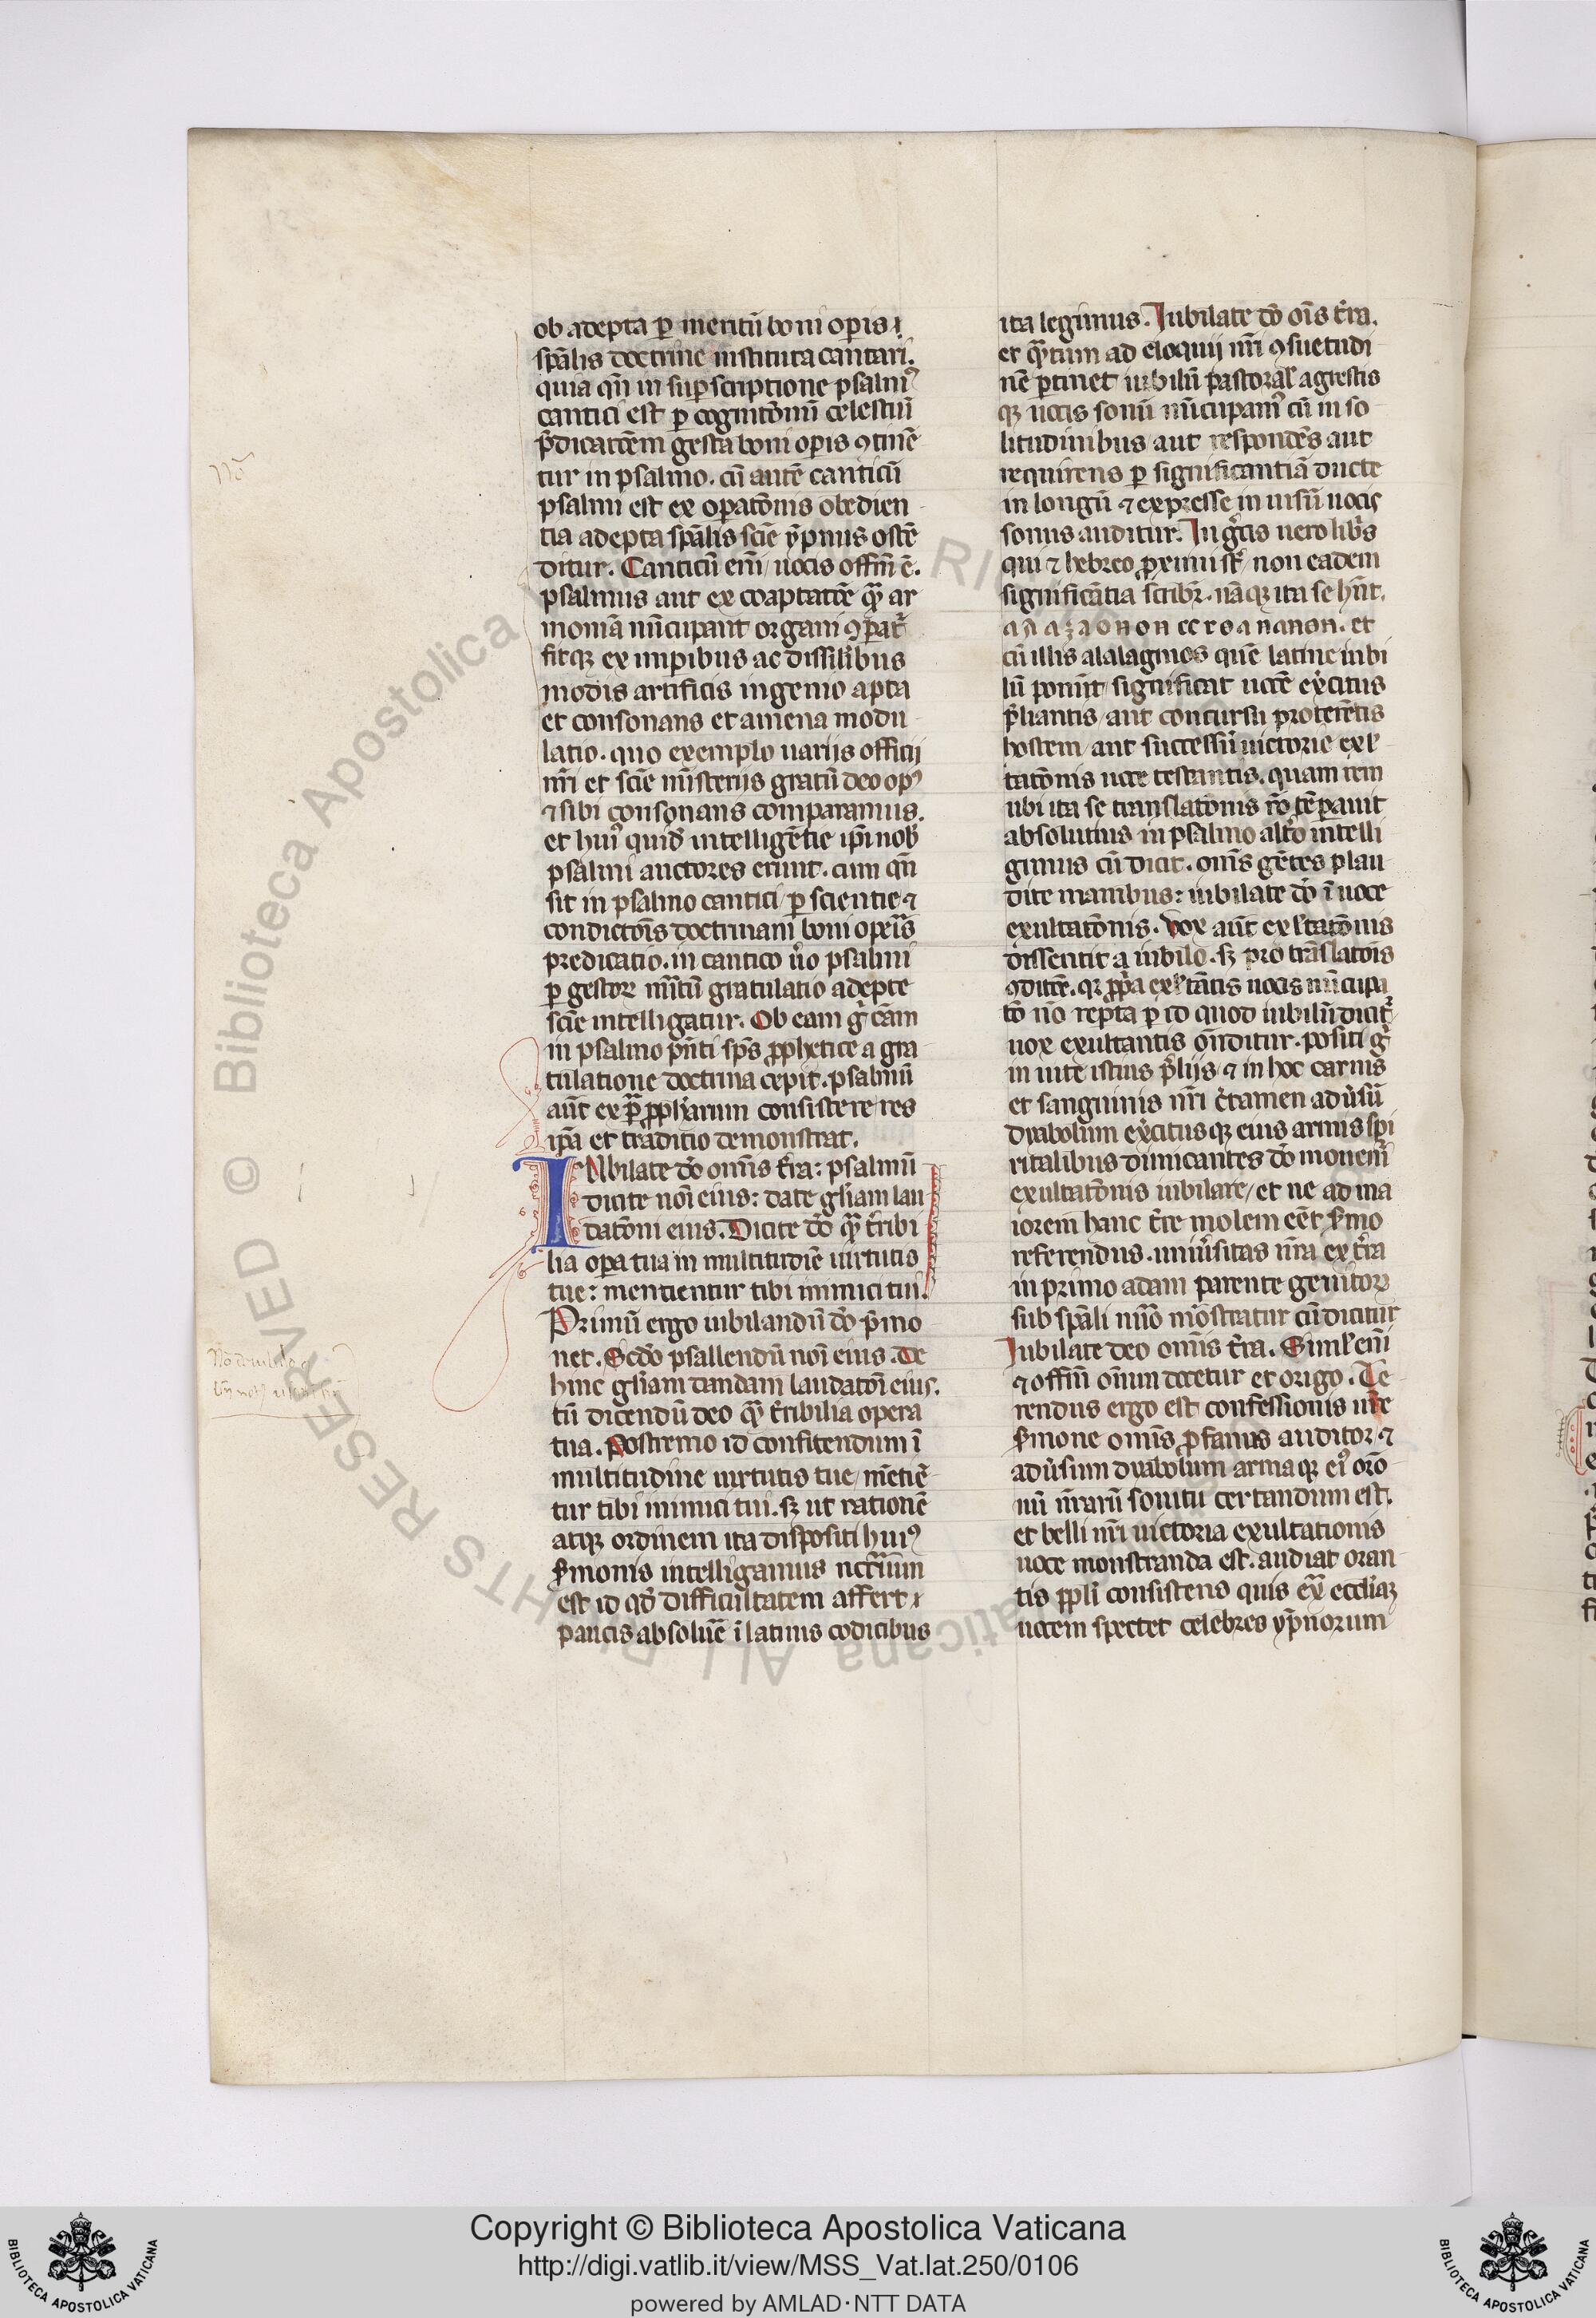 ob adepta ꝑ meritū boni oꝑis ⁊
sp̄alis doctrine instituta cantari.
quia qn̄ in suꝑscriptione psalmꝰ
cantici est ꝑ cognitōnū celestiū
p̄dicatōem gesta boni oꝑis ꝯtinē
tur in psalmo. cū autē canticū
psalmi est ex oꝑatōnis obedien
tia adepta sp̄alis scīe ẏpnus ostē
ditur. Canticū eni᷒ uocis offm̄ ē.
psalmus aut ex coaptatōe qᷓ ar
moniā nūcupant organi ꝯꝑat᷒
fitqꝫ ex imꝑibus ac dissil̄ibus
modis artificis ingenio apta
et consonans et amena modu
latio. quo exemplo uarijs officij
nr̄i et scīe mīsterijs gratū deo opꝰ
⁊ sibi consonans comparamus.
et huiꝰ quid᷒ intelligētie ip̄i nob᷒
psalmi auctores erunt. cum qn̄
sit in psalmo cantici ꝑ scientie ⁊
condictōis doctrinam boni oꝑis
predicatio. in cantico ůo psalmi
ꝑ gestoꝝ mītū gratulatio adepte
scīe intelligatur. Ob eam g᷒ cām
in psalmo pn̄ti sp̄s ꝓphetice a gra
tulatione doctrina cepit. psalmū
aūt ex pᷓ ꝓph̄arum consistere res
ip̄a et traditio demonstrat.
IUbilate dō omīs t᷒ra: psalmū
dicite noi᷒ eius: date gl̄iam lau
datōni eius. Dicite dō qᷓ t᷒ribi
lia oꝑa tua in multitudiē uirtutis
tue: mentientur tibi inimici tui.
Primū ergo iubilandū dō p̄mo
net. Scd̄o psallendū noi᷒ eius. De
hinc gl̄iam dandam laudatōi eius.
tū dicendū deo qᷓ t᷒ribilia opera
tua. Postremo id confitendum ī
multitudine uirtutis tue mētiē
tur tibi inimici tui. sꝫ ut rationē
atqꝫ ordinem ita dispositi huiꝰ
s᷒monis intelligamus nccᷓium
est id qd̄ difficultatem affert ⁊
paucis absoluē ī latinis codicibus
ita legimus. Iubilate dō oīs t᷒ra.
et qᷓtum ad eloquij nr̄i ꝯsuetudi
nē ꝑtinet iubilū pastoral᷒ agrestis
qꝫ uocis sonū nūcupamꝰ cū in so
litudinibus aut respondēs aut
requirens ꝑ significantiā ducte
in longū ⁊ expresse in nisū uocis
sonus auditur. In g᷒cis uero lib᷒s
qui ⁊ hebreo ꝓximi st᷒ non eadem
significātia scribr̄. nāqꝫ ita se hn̄t.
a n a z a o n o n c c r o a n a n o n. et
cū illis alalagmos quē latine iubi
lū ponūt significat uocē ex᷒citus
p̄liantis aut concursu proterētis
hostem aut successū uictorie exl᷒
tatōnis uoce testantis. quam rem
ubi ita se translatōnis rō tēꝑauit
absolutius in psalmo alt᷒o intelli
gimus cū dicit. omīs gētes plau
dite manibus: iubilate dō ī uoce
exultatōnis. Vox aūt exl᷒tatōnis
dissentit a iubilo. sꝫ pro trāslatōis
ꝯditōe. qꝛ ꝓp̄a exl᷒tātis uocis nūcupa
tō nō reꝑta ꝑ id quod iubilū dicit᷒
uox exultantis on̄ditur. positi g᷒
in uite istius p̄lijs ⁊ in hoc carnis
et sanguinis nr̄i c᷒tamen adůsū
dyabolum ex᷒citusqꝫ eius armis spi
ritalibus dimicantes dō monem᷒
exultatōnis iubilare et ne ad ma
iorem hanc t᷒re molem eēt s᷒mo
referendus. uniůsitas nr̄a ex t᷒ra
in primo adam parente genitoꝝ
sub sp̄ali nūo mōstratur cū dicitur
Iubilate deo omīs t᷒ra. Simlʼ eni᷒
⁊ offm̄ om̄um docetur et origo. Te
rendus ergo est confessionis nr̄e
s᷒mone omīs ꝓfanus auditor ⁊
adůsum dyabolum armaqꝫ eiꝰ orō
nū nr̄arū sonitu certandum est.
et belli nr̄i uictoria exultationis
uoce monstranda est. audiat oran
tis ppl̄i consistens quis exᷓ eccl̄iaꝫ
uocem spectet celebres ẏpnorum
Copyright © Biblioteca Apostolica Vaticana
http://digi.vatlib.it/view/MSS_Vat.lat.250/0106
powered by AMLAD·NTT DATA
BIBLIOTECA APOSTOLICA VATICANA
BIBLIOTECA APOSTOLICA VATICANA
© Biblioteca Apostolica Vaticana ALL RIGHTS RESERVED